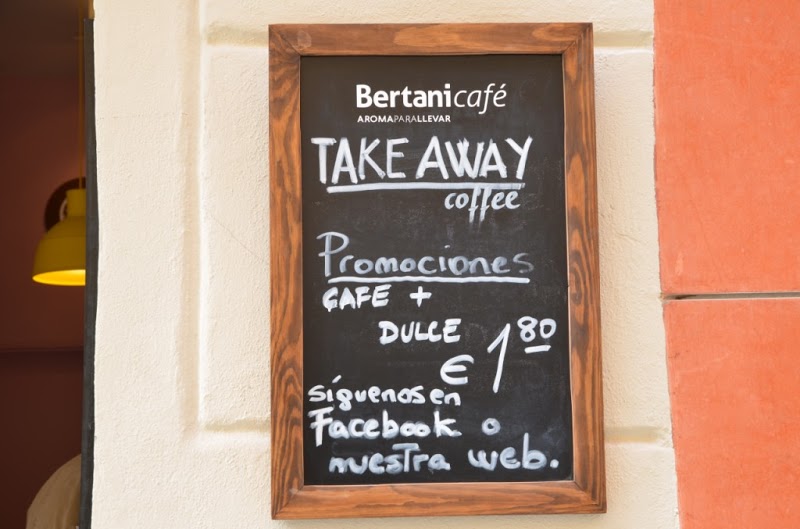 Bertanicafé
AROMAPARALLEVAR
TAKE AWAY
coffee
Promociones
CAFE +
DULCE
€ 1 80
síguenos en
Facebook o
nuestra web.